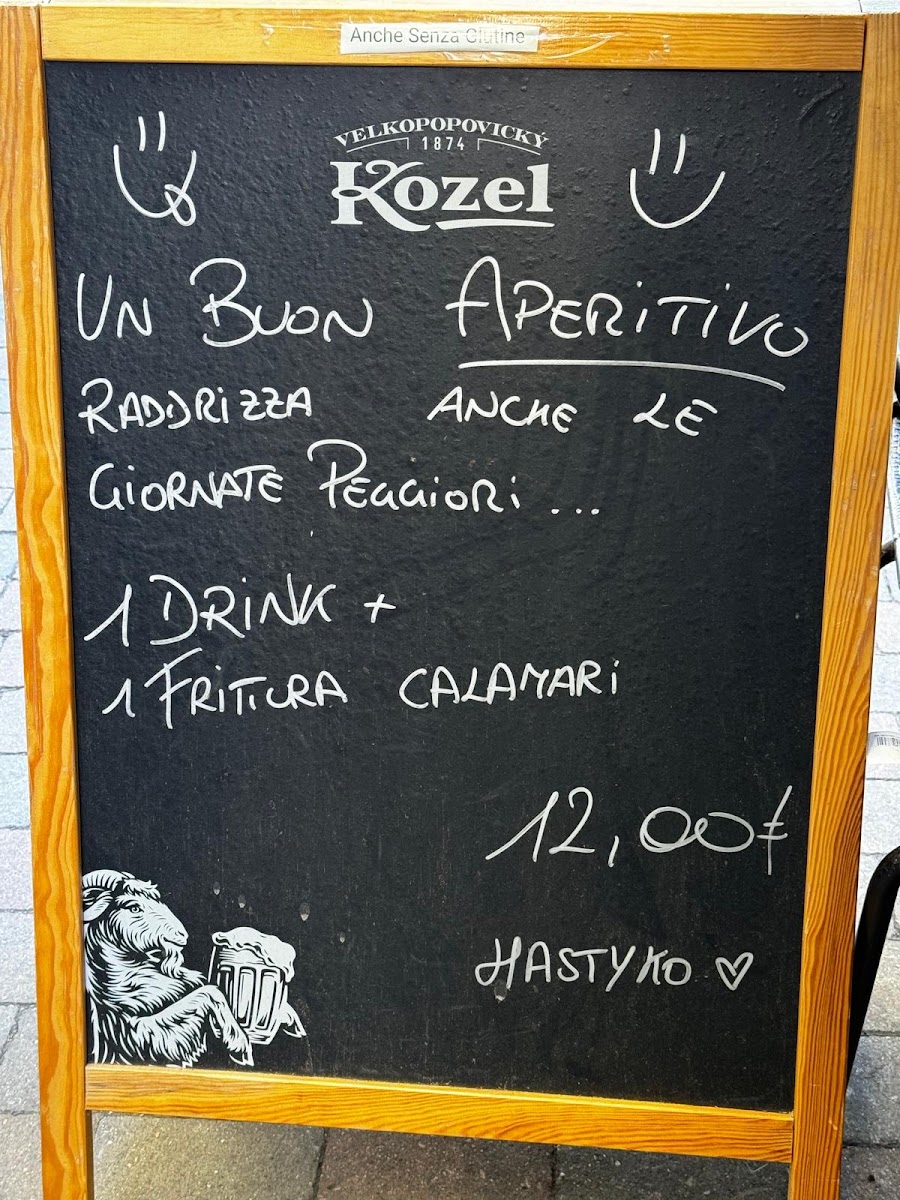 Anche Senza Glutine
VELKOPOPOVICKÝ
1874
Kozel
UN BUON APERITIVO
RADDRIZZA ANCHE LE
GIORNATE PEGGIORI...
1 DRINK +
1 FRITTURA CALAMARI
12,00€
HASTYKO ♡